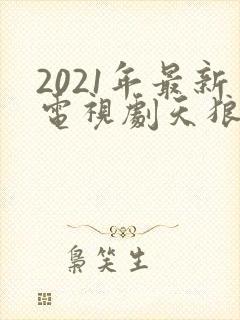 2021年最新
電視劇天狼
梟笑生